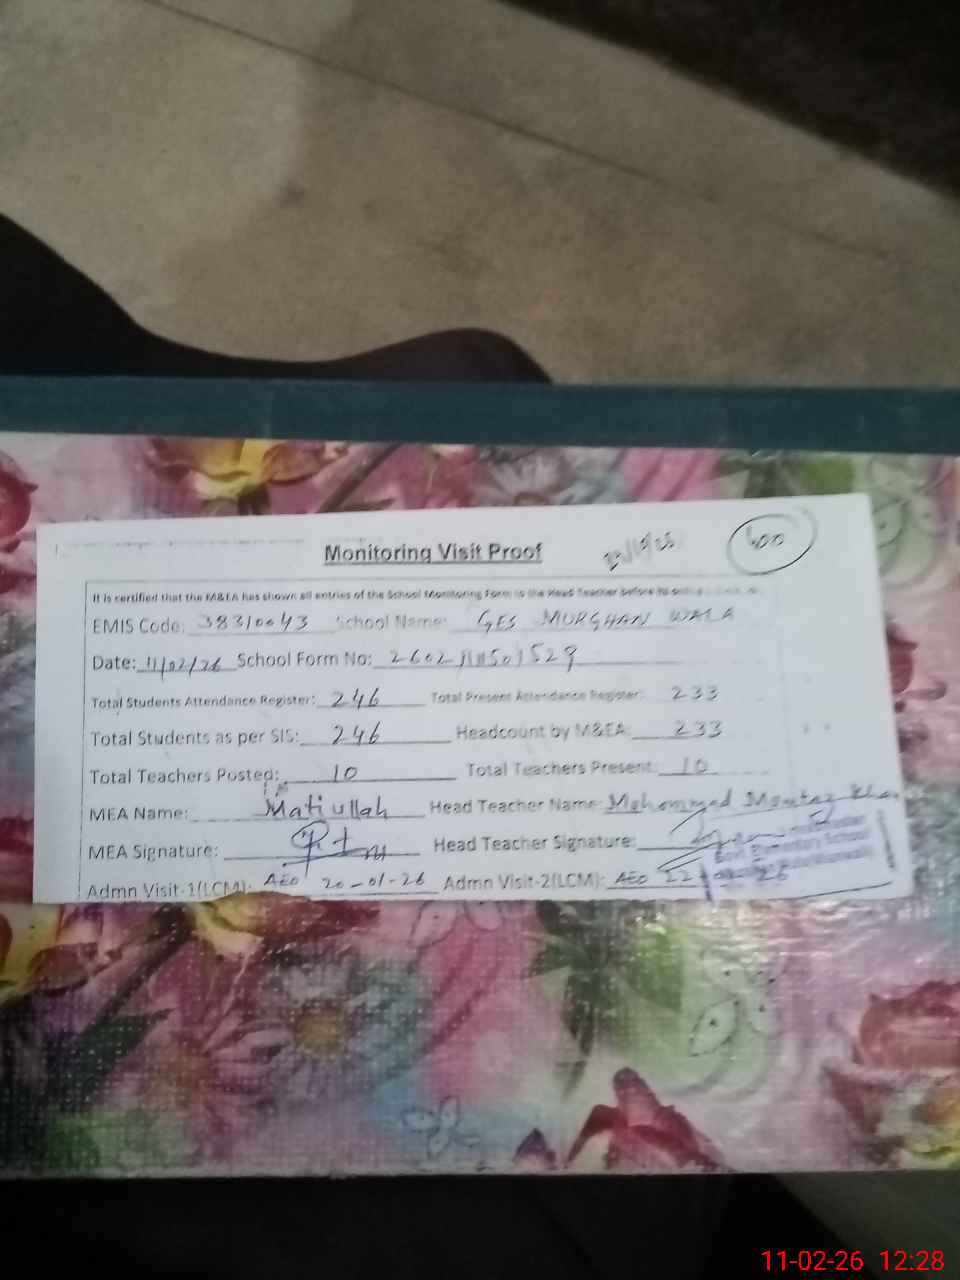 Monitoring Visit Proof
It is certified that the M&EA has shown all entries of the School Monitoring Form to the Head Teacher before
EMIS Code: 38310043 School Name: GES MURGHAN WALA
Date: 11/02/26 School Form No:
Total Students Attendance Register: 246 Total Present Attendance Register: 233
Total Students as per SIS: 246 Headcount by M&EA: 233
Total Teachers Posted: 10 Total Teachers Present: 10
MEA Name: Matiullah Head Teacher Name: Mohammad Momtaz Khan
MEA Signature: Head Teacher Signature:
Govt. Elementary School
Admn Visit-1(LCM): AEO 20-01-26 Admn Visit-2(LCM): AEO
11-02-26 12:28